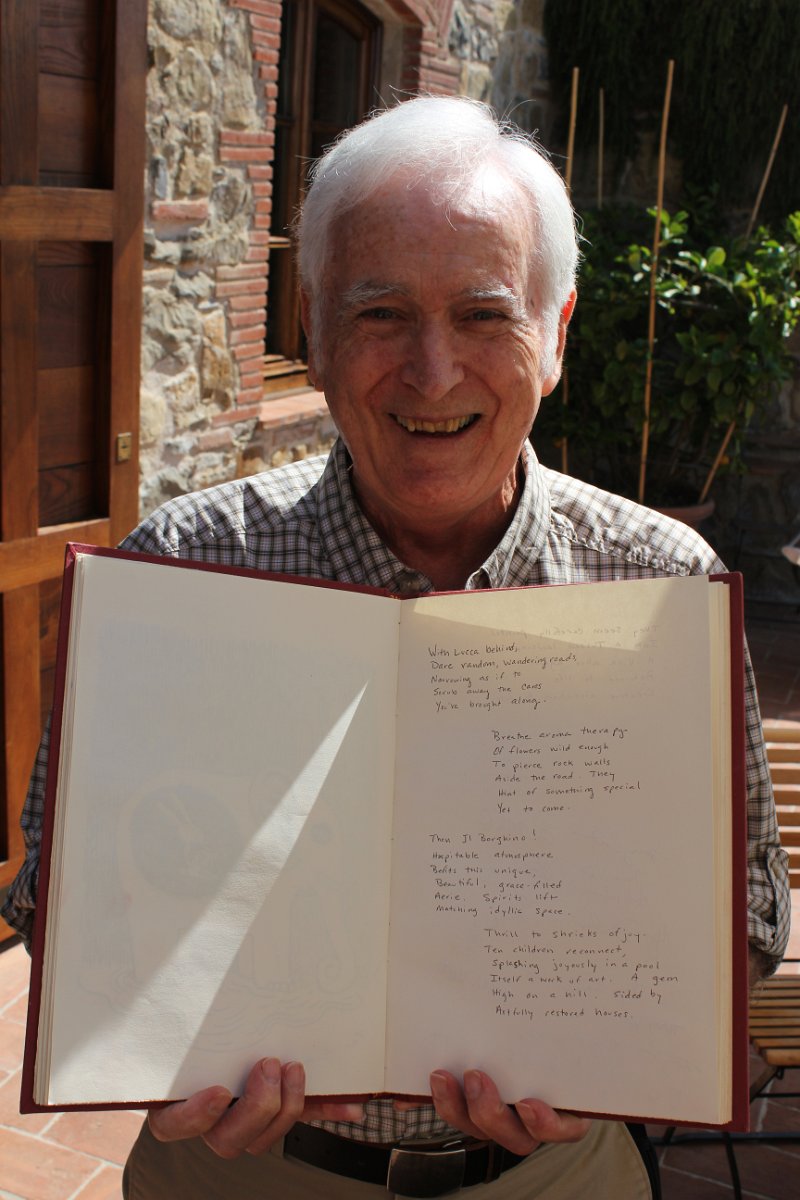 With Lucca behind,
Dare random, wandering roads,
Narrowing as if to
Scrub away the cares
You've brought along.
Breathe aroma therapy
Of flowers wild enough
To pierce rock walls
Aside the road. They
Hint of something special
Yet to come.
Then Il Borghino!
Hospitable atmosphere
Befits this unique,
Beautiful, grace-filled
Aerie. Spirits lift
Matching idyllic space.
Thrill to shrieks of joy.
Ten children reconnect,
Splashing joyously in a pool
Itself a work of art. A gem
High on a hill. Sided by
Artfully restored houses.